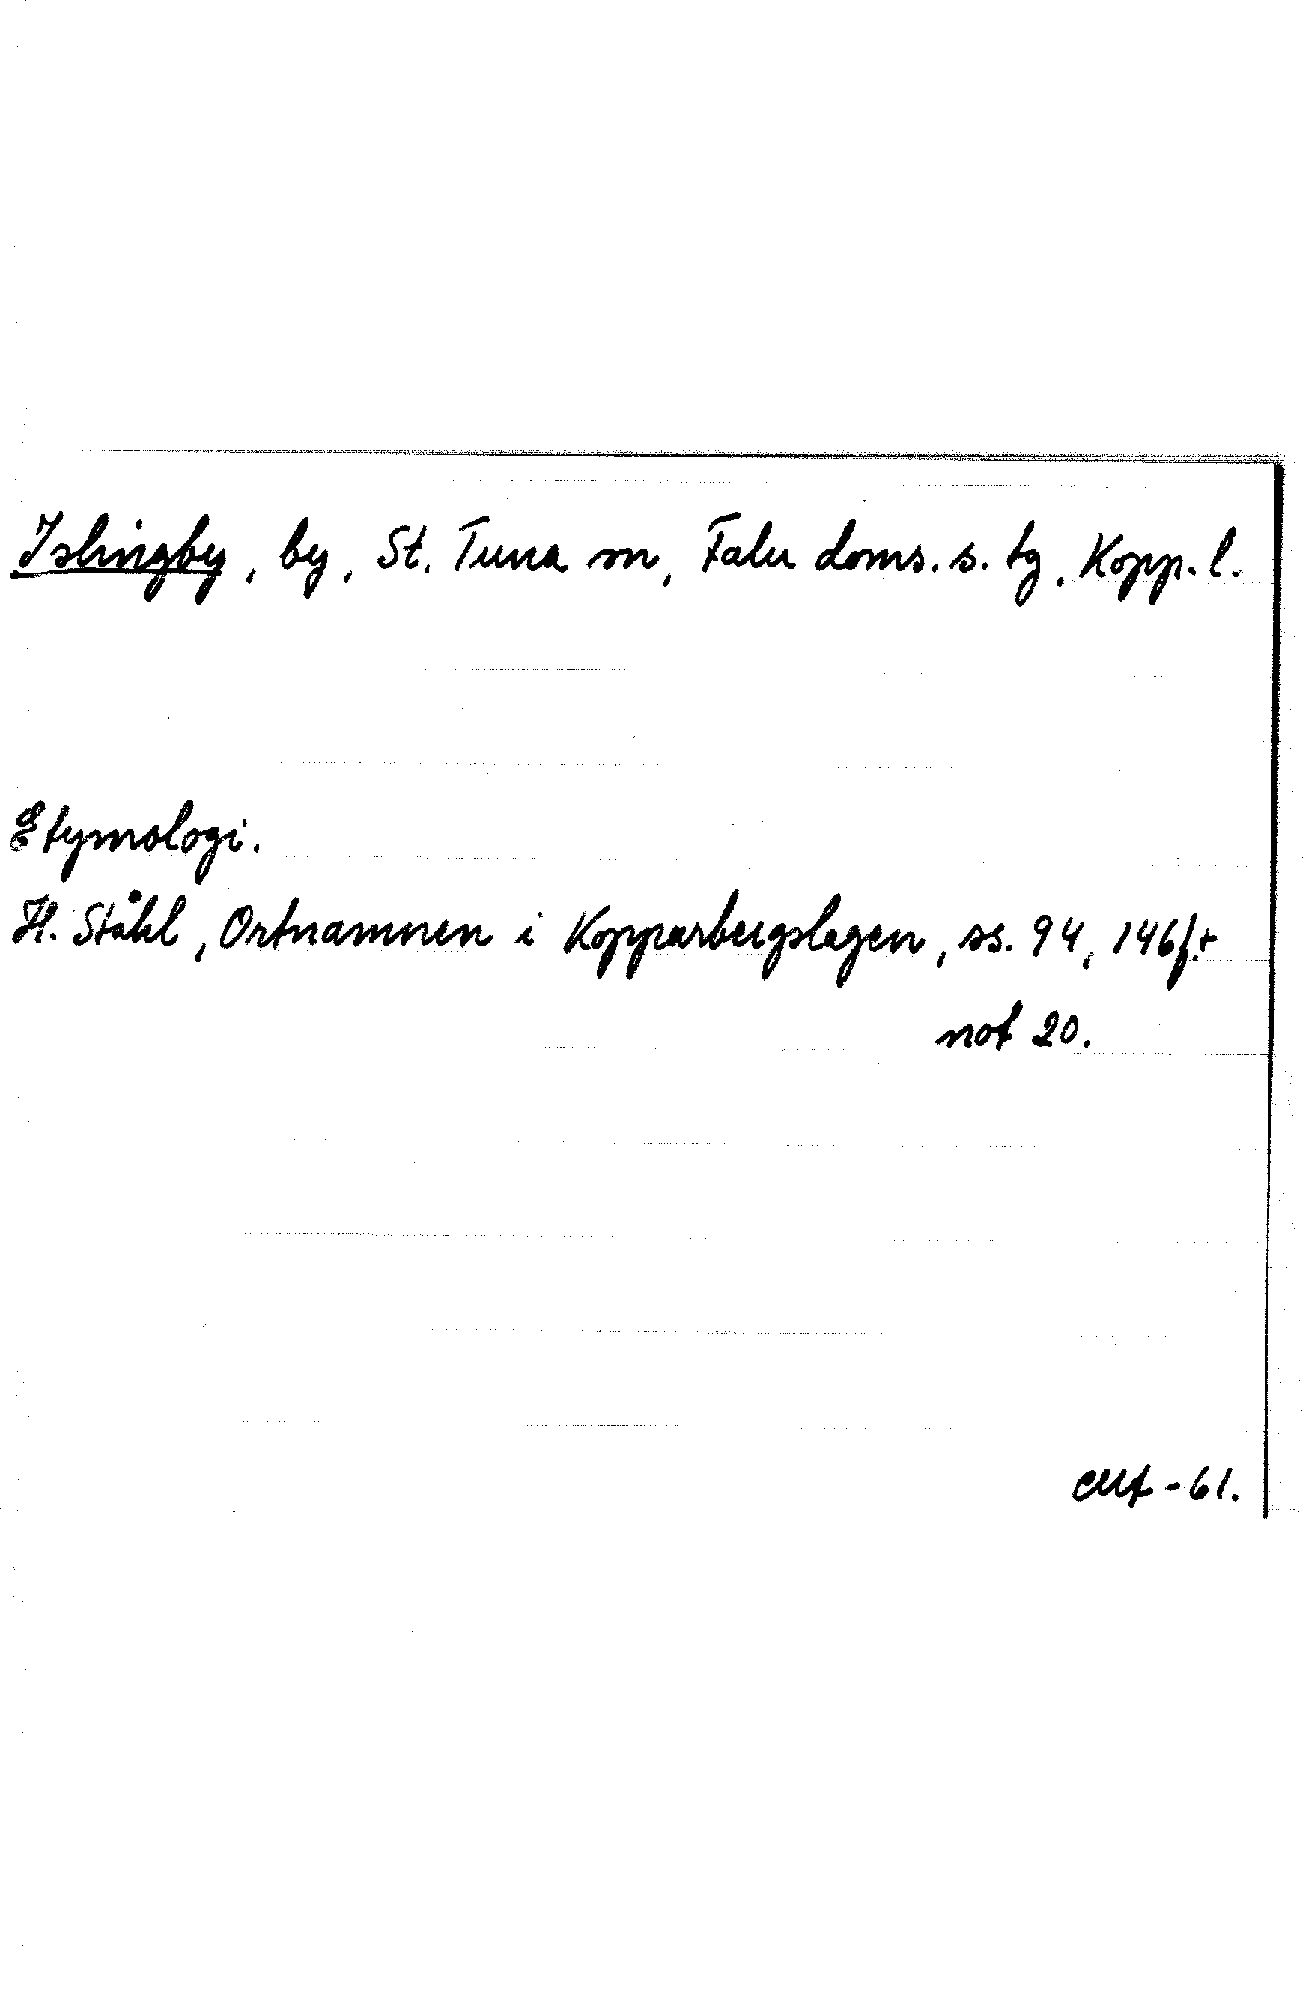 Islingby, by, St. Tuna sn, Falu doms.s. tg, Kopp. l.
Etymologi.
H. Ståhl, Ortnamnen i Kopparbergslagen, ss. 94, 146f.+
not 20.
-61.